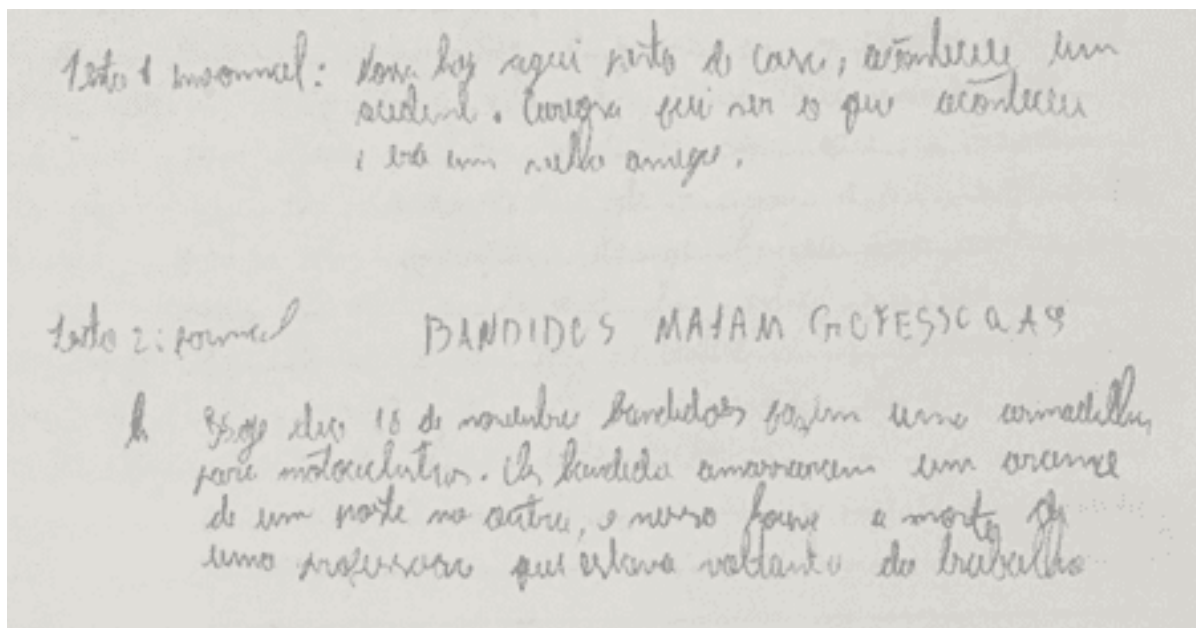 Texto 1 informal: Nossa hoje aqui perto de casa, aconteceu um
acident. Corregra fui ver o que aconteceu
e era um velho amigo.
Texto 2: formal BANDIDOS MATAM PROFESSORAS
Hoje dia 18 de novembro bandidos fazem uma armadilha
para motociclistas. Os bandida amarraram um arame
de um poste no outro, e nisso houve a morte de
uma professora que estava voltanto do trabalho